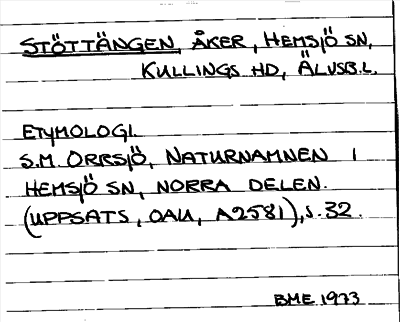 STÖTTÄNGEN, ÅKER, HEMSJÖ SN,
KULLINGS HD, ÄLVSB.L.
ETYMOLOGI.
S.M. ORRSJÖ, NATURNAMNEN I
HEMSJÖ SN, NORRA DELEN.
(UPPSATS, OAU, A2581), S. 32.
BME 1973